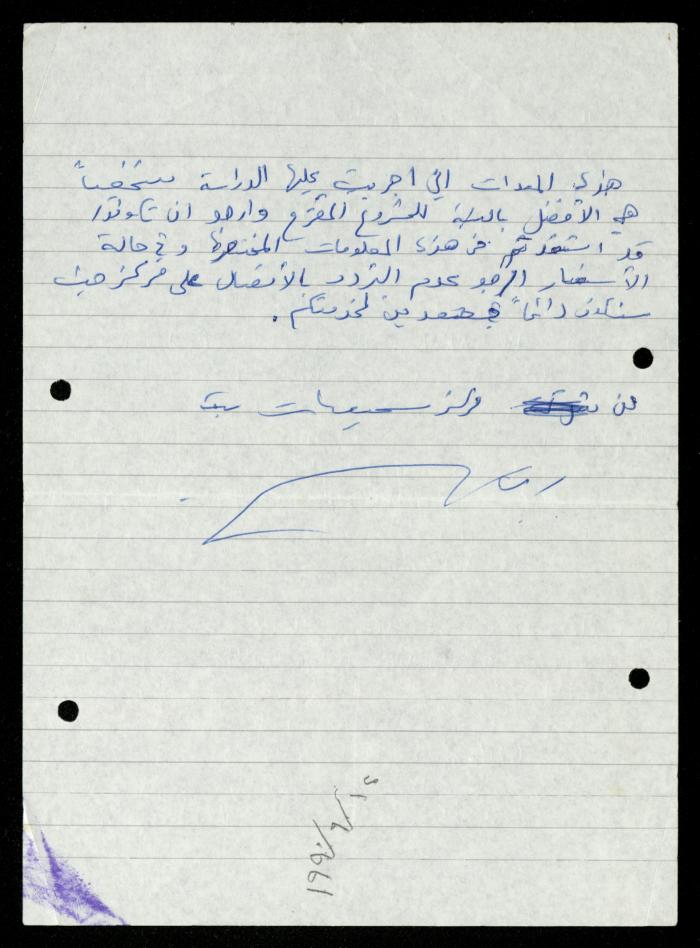 هذه المعدات التي اجريت عليها الدراسة شخصياً
هي الأفضل بالنسبة للمشروع المقترح وارجو ان تكونوا
قد استفدتم من هذه المعلومات المختصرة وفي حالة
الأستفسار ارجو عدم التردد بالأتصال على مركز حيث
سنكون دائماً مستعدين لخدمتكم .
عن مركز سمعيات بيت